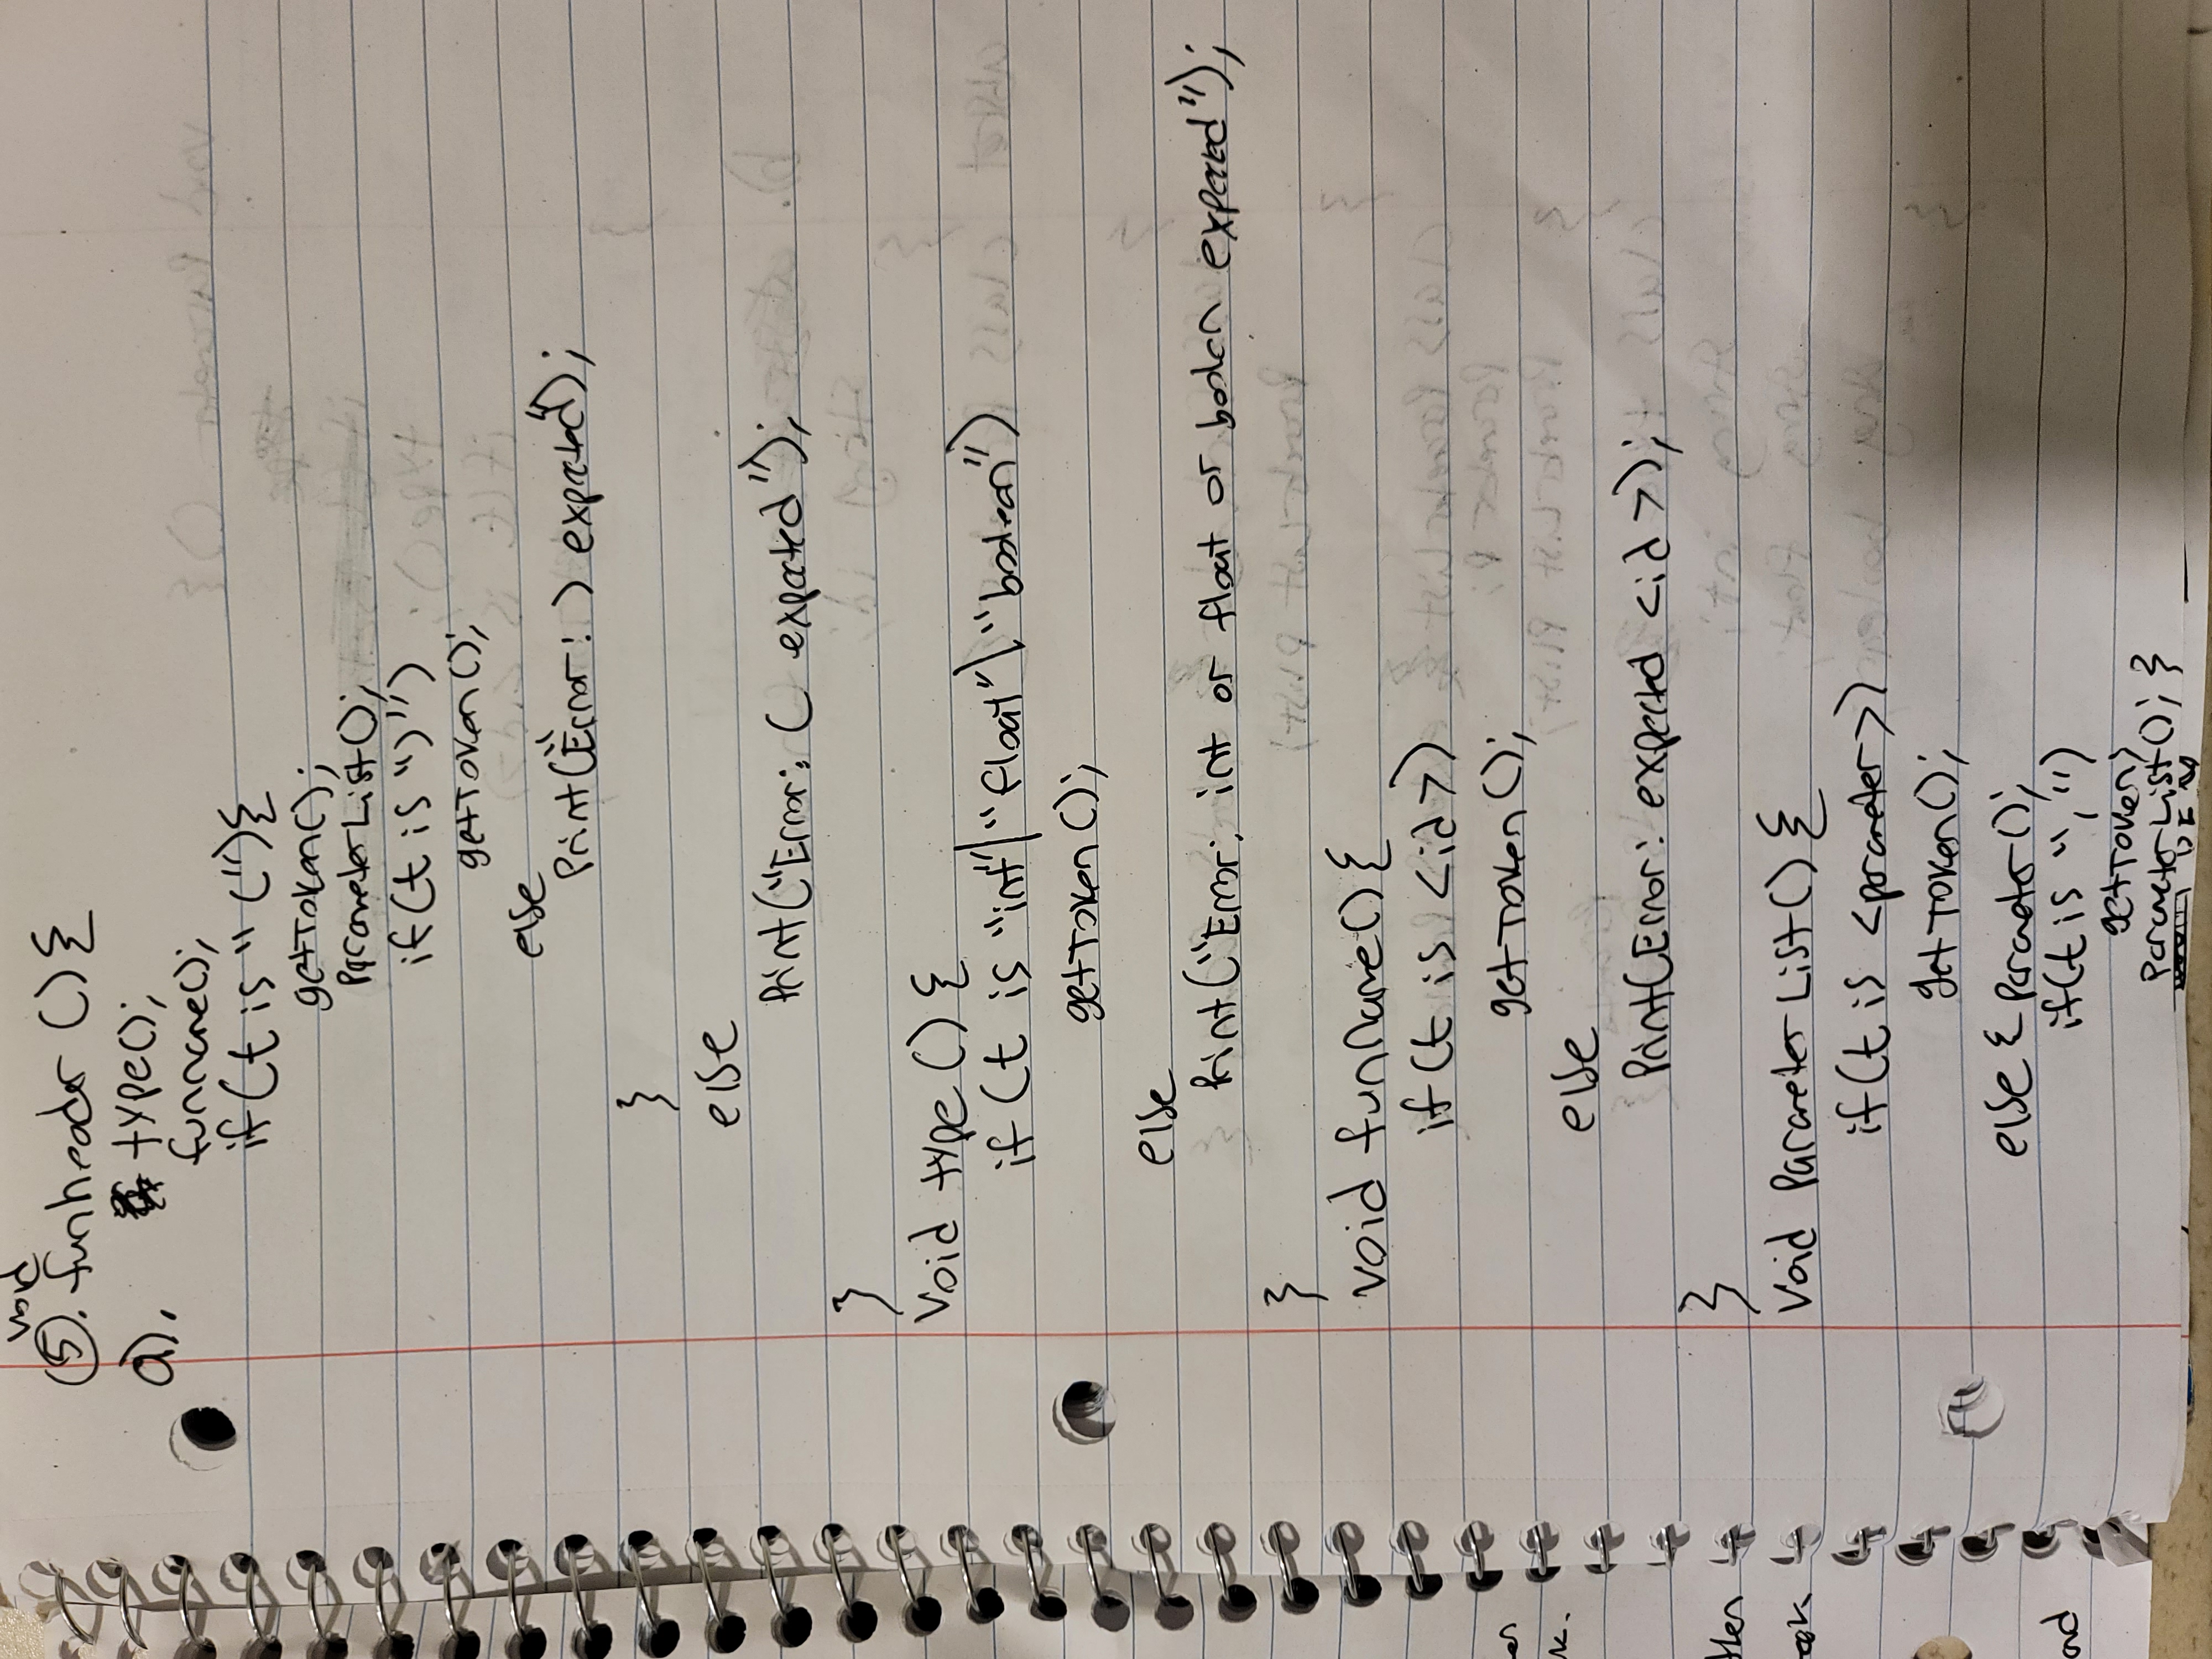 void
⑤. funheader () {
a). type();
funname();
if(t is "("){
getToken();
ParameterList();
if(t is ")")
getToken();
else
Print("Error: ) expected");
}
else
Print("Error: ( expected");
}
Void type () {
if (t is "int"|"float"|"boolean")
getToken();
else
Print("Error: int or float or boolen expected");
}
void funName() {
if(t is <id>)
getToken();
else
Print(Error: expected <id>);
}
Void ParameterList() {
if(t is <parameter>)
getToken();
else { Parameter();
if(t is ",")
getToken;
ParameterList(); }